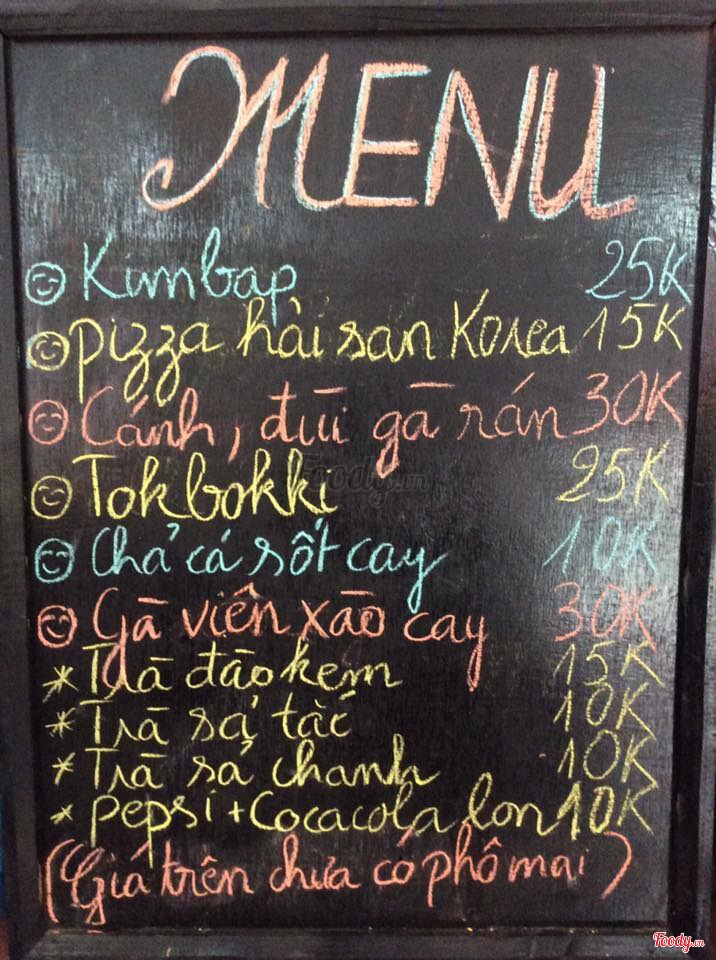 MENU
Kimbap 25K
pizza hải san Korea 15K
Cánh, đùi gà rán 30K
Tokbokki 25K
Chả cá sốt cay 10K
Gà viên xào cay 30K
* Trà đào kem 15K
* Trà sả tắc 10K
* Trà sả chanh 10K
* pepsi + Cocacola lon 10K
(Giá trên chưa có phô mai)
Foody.vn
Foody.vn